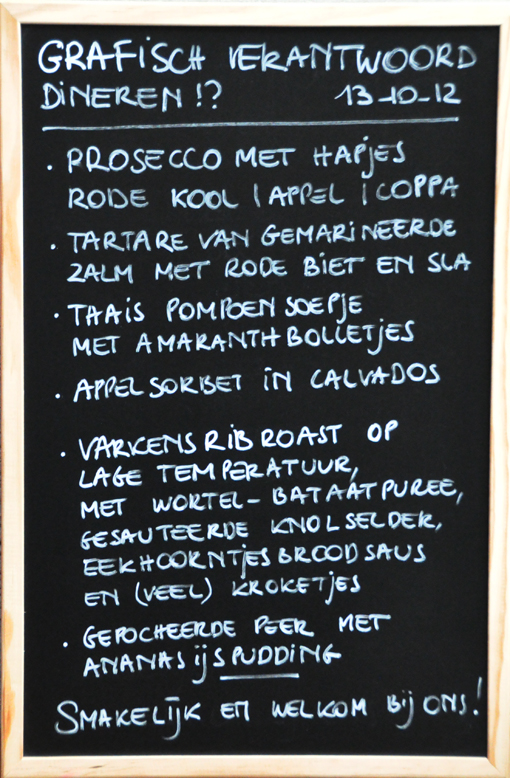 GRAFISCH VERANTWOORD
DINEREN!? 13-10-12
• PROSECCO MET HAPJES
RODE KOOL | APPEL | COPPA
• TARTARE VAN GEMARINEERDE
ZALM MET RODE BIET EN SLA
• THAIS POMPOENSOEPJE
MET AMARANTHBOLLETJES
• APPELSORBET IN CALVADOS
• VARKENSRIBROAST OP
LAGE TEMPERATUUR,
MET WORTEL-BATAATPUREE,
GESAUTEERDE KNOLSELDER,
EEKHOORNTJESBROODSAUS
EN (VEEL) KROKETJES
• GEPOCHEERDE PEER MET
ANANASIJSPUDDING
SMAKELIJK EN WELKOM BIJ ONS!